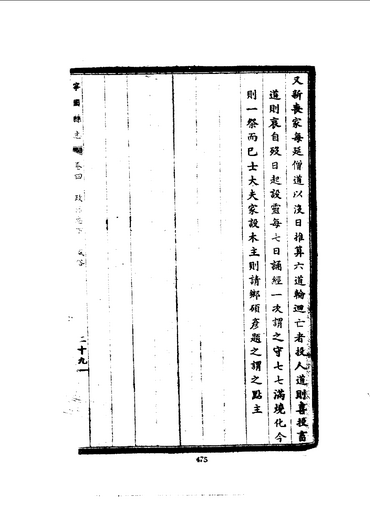 又新喪家每延僧道以沒日推算六道輪迴亡者投人道則喜投畜
道則哀自歿日起設靈每七日誦經一次謂之守七七滿燒化今
則一祭而已士大夫家設木主則請鄉碩彥題之謂之點主
寧國縣志 卷四 政
二十九
475